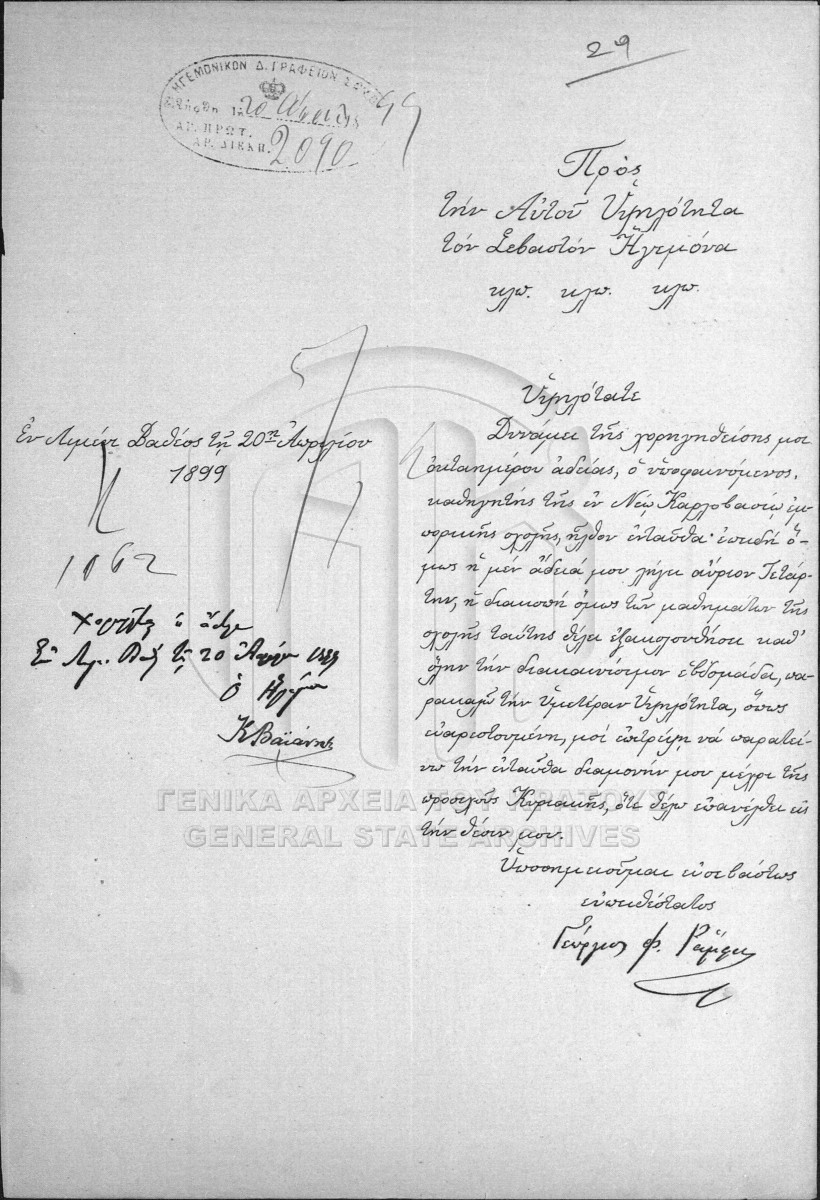 29
ΗΓΕΜΟΝΙΚΟΝ Δ. ΓΡΑΦΕΙΟΝ ΣΑΜΟΥ
20 Απριλ 99
ΑΡ. ΠΡΩΤ. 2090
ΑΡ. ΔΙΕΚΠ.
Πρὸς
τὴν Αὐτοῦ Ὑψηλότητα
τὸν Σεβαστὸν Ἡγεμόνα
κλπ. κλπ. κλπ.
Ἐν Λιμένι Βαθέος τῇ 20ῇ Ἀπριλίου
1899
1062
Χορηγεῖται ἡ ἄδεια
Ἐν Λιμ. Βαθ. τῇ 20 Ἀπρ. 1899
Ὁ Ἡγεμὼν
Κ Βαϊάνης
Ὑψηλότατε
Δυνάμει τῆς χορηγηθείσης μοι
ὀκταημέρου ἀδείας, ὁ ὑποφαινόμενος,
καθηγητὴς τῆς ἐν Νέῳ Καρλοβασίῳ ἐμ-
πορικῆς σχολῆς, ἦλθον ἐνταῦθα· ἐπειδὴ ὅ-
μως ἡ μὲν ἄδειά μου λήγει αὔριον Τετάρ-
την, ἡ διακοπὴ ὅμως τῶν μαθημάτων τῆς
σχολῆς ταύτης θέλει ἐξακολουθήσει καθ'
ὅλην τὴν διακαινήσιμον ἑβδομάδα, πα-
ρακαλῶ τὴν Ὑμετέραν Ὑψηλότητα, ὅπως
εὐαρεστουμένη, μοὶ ἐπιτρέψῃ νὰ παρατεί-
νω τὴν ἐνταῦθα διαμονήν μου μέχρι τῆς
προσεχοῦς Κυριακῆς, ὅτε θέλω ἐπανέλθει εἰς
τὴν θέσιν μου.
Ὑποσημειοῦμαι εὐσεβάστως
εὐπειθέστατος
Γεώργιος Φ.
ΓΕΝΙΚΑ ΑΡΧΕΙΑ ΤΟΥ ΚΡΑΤΟΥΣ
GENERAL STATE ARCHIVES